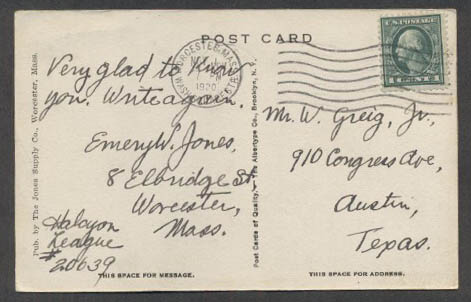 POST CARD
WORCESTER, MASS.
1920
U.S. POSTAGE
1 CENT 1
Very glad to know
you. Write again.
Emery W. Jones,
8 Elbridge St,
Worcester,
Mass.
Halcyon
League
# 20639
Mr. W. Greig, Jr.,
910 Congress Ave,
Austin,
Texas.
THIS SPACE FOR MESSAGE.
THIS SPACE FOR ADDRESS.
Pub. by The Jones Supply Co., Worcester, Mass.
Post Cards of Quality.—The Albertype Co., Brooklyn, N. Y.